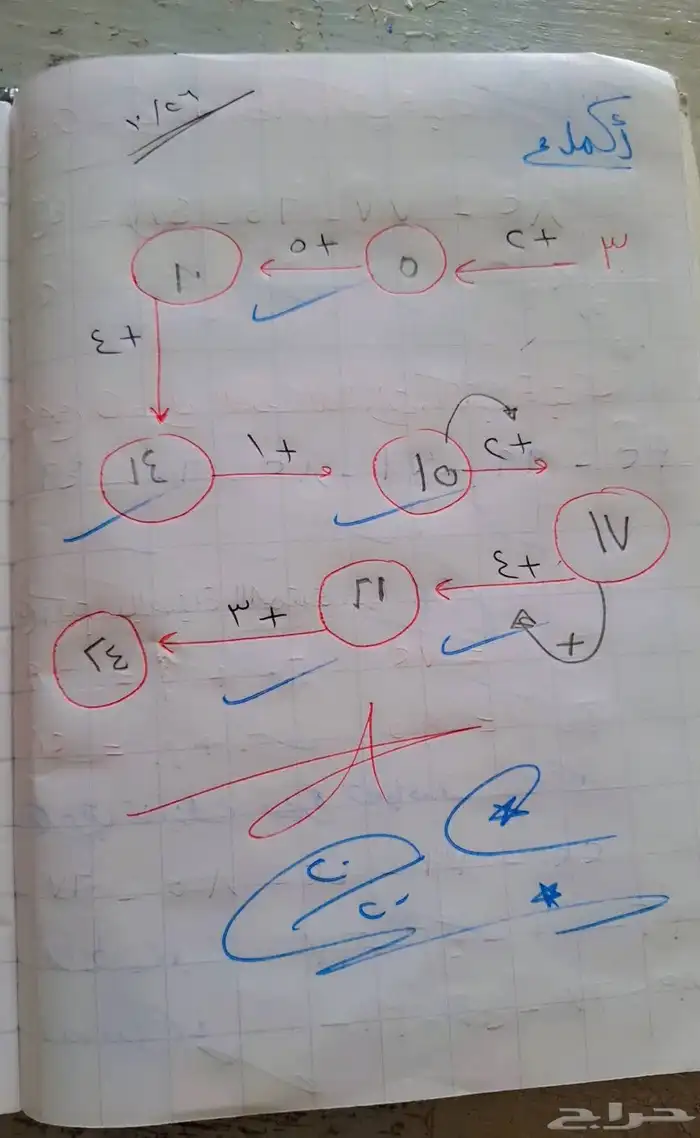 ١٠/٢٦
أكملي
٣ +٢ ٥ +٥ ١٠
+٤
١٤ +١ ١٥ +٢
١٧ +٤ ٢١ +٣ ٢٤
+
٢٠
٢٠
حراج